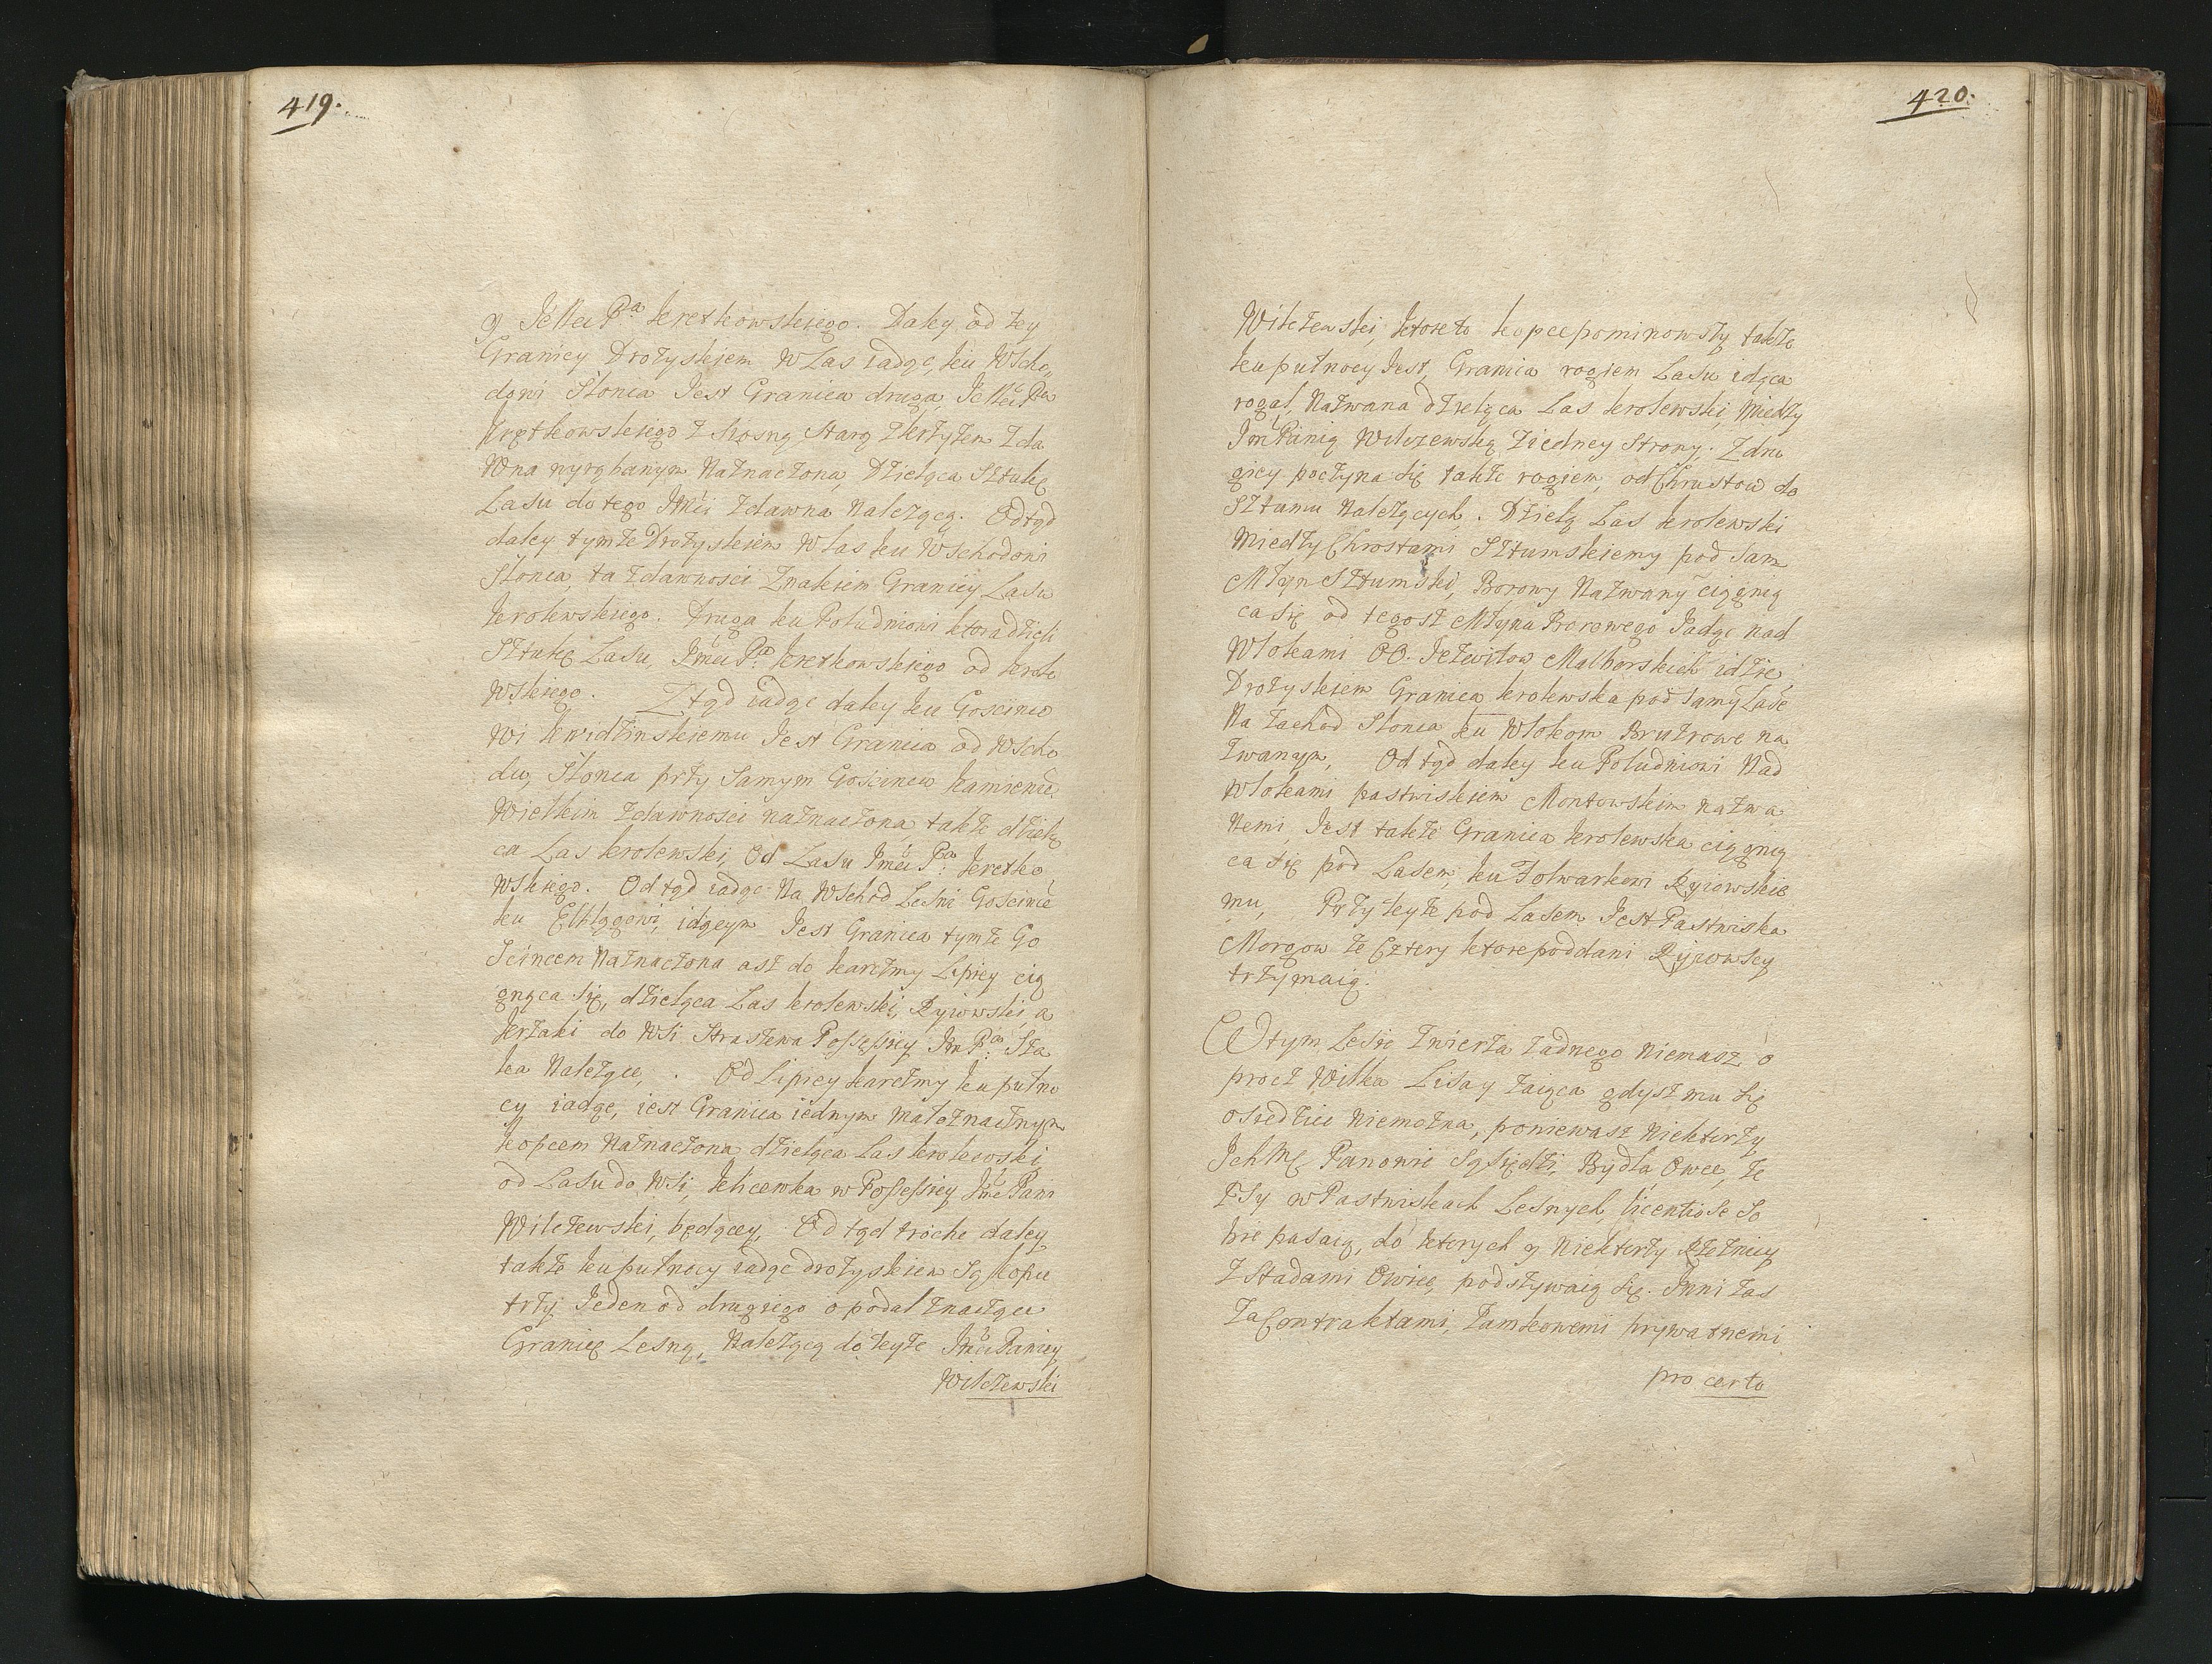 419.
y JeMci Pa Kretkowskiego. Daley od tey
Granicy Drożyskiem w Las iadąc, ku Wscho„
dowi Słonca Jest Granica druga, JeMci Pa
Krętkowskiego z Sosną Starą z krzyżem z da
wna wyrąbanym Naznaczona, Dzieląca Sztukę
Lasu do tego JMci zdawna Nalezącą. Odtąd
daley tymze Drożyskiem w las ku Wschodowi
Słonca, ta zdawnosci Znakiem Granicy Lasu
krolewskiego. Druga ku Południowi ktora dzieli
Sztukę Lasu, Jmci Pa Kretkowskiego od krole
wskiego. Ztąd iadąc daley ku Goscinco
wi kwidzinskiemu Jest Granica od Wscho
du, Słonca przy Samym Goscincu kamieniē
Wielkim zdawnosci naznaczona takze dzielą
ca Las krolewski, Od Lasu Jmci Pa: Kretko
wskiego. Od tąd iadąc Na Wschod Lesni Goscincē
ku Elblągowi, idącym Jest Granica tymze Go
scincem Naznaczona asz do karczmy Lipiey cią
gnąca się, dzieląca Las krolewski, Ryiowski, a
krzaki do Wsi Straszewa Possessiey Jm Pa: Sta
ka Nalezące, . Od Lipiey karczmy ku pułno
cy iadąc, iest Granica iednym małoznacznym
kopcem Naznaczona dzieląca Las krolewski
od Lasu do Wsi, Klicewka w Possessiey Jmc Pani
Wilczewski, będącey, Od tąd troche daley
takze ku pułnocy iadąc drożyskiem Są kopce
trzy Jeden od drugiego opodal znaczące
Granicę Lesną, Nalezącą do teyże Jmci Paniey
Wilczewski
420.
Wilczewski, ktore to kopce pominowszy takze
ku pułnocy Jest, Granica rogiem Lasu idąca
rogal, Nazwana dzieląca Las krolewski, Między
Jm Panią Wilczewską Ziedney Strony, Z dru
giey poczyna się takze rogiem, od Chrustow do
Sztumu Nalezących. Dzielą Las krolewski
Miedzy Chrostami Sztumskiemy pod Sam
Młyn Sztumski, Borowy Nazwany ciągnią
ca się od tegosz Młyna Borowego Jadąc nad
Włokami OO. Jezwitow Malborskich idzie
Drożyskiem Granica krolewska pod samy Lasē
Na zachod Słonca ku Włokom Brutrowe na
zwanym, Od tąd daley ku Południowi Nad
włokami pastwiskiem Montowskim nazwa
nemi, Jest takze Granica krolewska ciągnią
ca się pod Lasem, ku Folwarkowi Ryiowskie
mu, Przy teyże pod Lasem Jest Pastwiska
Morgow ze Cztery ktore poddani Ryiowscy
trzymaią.
W tym Lesie zwierza zadnego Niemasz o
procz Wilka Lisa y zaiąca gdysz mu się
osiedziec Niemożna, poniewasz Niektorzy
Ich Mę Panowie Sąsiedzi, Bydła, Owce, ze
Wsy w Pastwiskach Lesnych, licentiose So
bie pasaią, do ktorych y Niektorzy Rzeznicy
z Stadami Owiec, podszywaią się. Inni zas
za Contraktami, Zamkowemi prywatnemi
pro certo